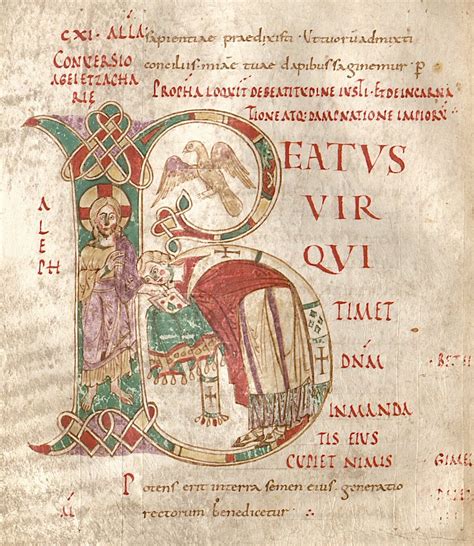 CXI · ALLA
CONVERSIO
AGEI ET ZACHA
RIE
sapientiae praedixisti · Ut tuorū admixti
conciliis · hiac tuae dapibus saginemur · P
PROPHA LOQUIT DE BEATITUDINE IUSTI · ET DE INCARNA
TIONE ATQ: DAMPNATIONE IMPIORŪ
ALEPH
BEATVS
VIR
QVI
TIMET
DNM
BETH
IN MANDA
TIS EIUS
CUPIET NIMIS
GIMEL
Potens erit in terra semen eius · generatio
rectorum benedicetur ·